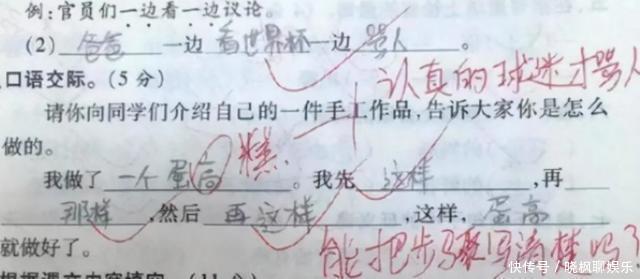 例:官员们一边看一边议论。
(2) 爸爸 一边 看世界杯 一边 骂人 。
认真的球迷才骂人
口语交际。(5分)
请你向同学们介绍自己的一件手工作品,告诉大家你是怎么
做的。
糕.
我做了 一个蛋高 。我先 这样 ,再
那样 ,然后 再这样 ,这样, 蛋高
就做好了。
能把步骤写清楚吗?
快传号/晓枫聊娱乐